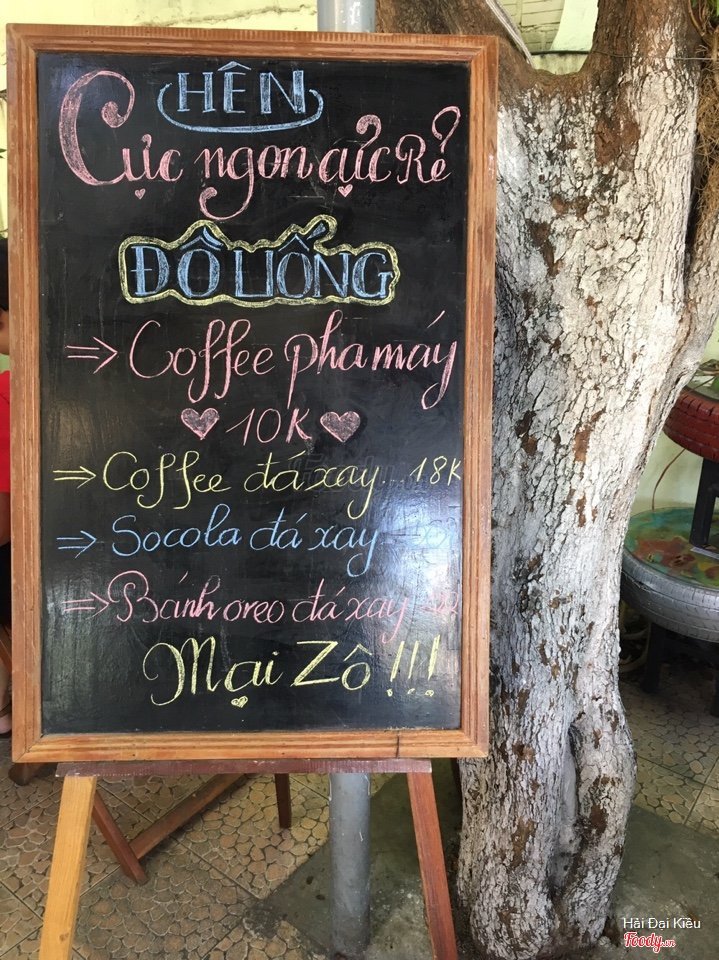 HÊN
Cực ngon cực Rẻ
ĐỒ UỐNG
⇒ Coffee pha máy
♥ 10K ♥
⇒ Coffee đá xay... 18K
⇒ Socola đá xay
⇒ Bánh oreo đá xay
Mại Zô!!!
Hải Đại Kiều
Foody.vn